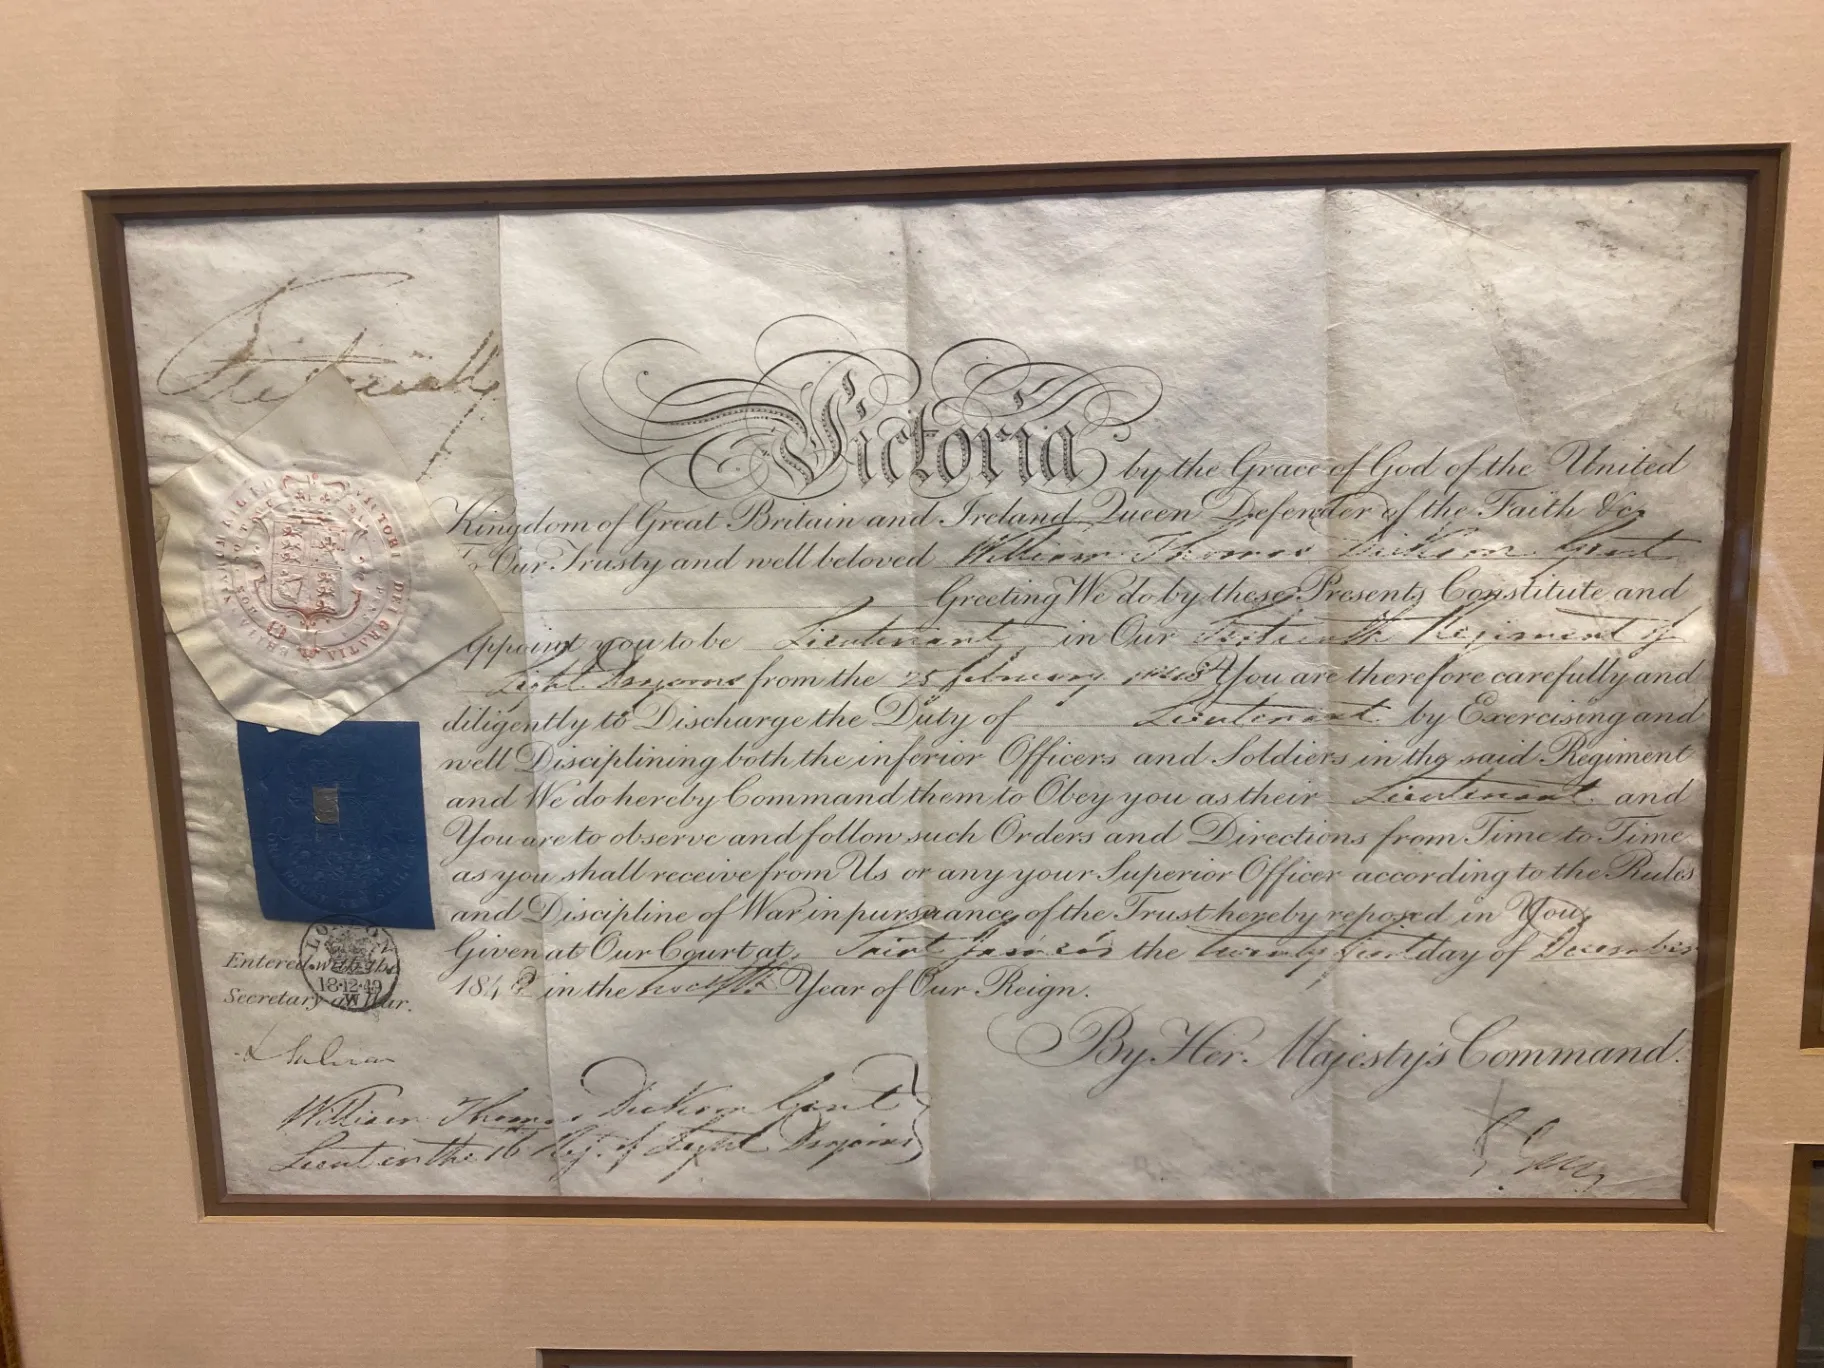 Victoria R
Victoria by the Grace of God of the United
Kingdom of Great Britain and Ireland Queen Defender of the Faith &c
To Our Trusty and well beloved William Thomas Dickson Gent
Greeting We do by these Presents Constitute and
appoint you to be Lieutenant in Our Sixteenth Regiment of
Light Dragoons from the 25 february You are therefore carefully and
diligently to Discharge the Duty of Lieutenant by Exercising and
well Disciplining both the inferior Officers and Soldiers in the said Regiment
and We do hereby Command them to Obey you as their Lieutenant and
You are to observe and follow such Orders and Directions from Time to Time
as you shall receive from Us or any your Superior Officer according to the Rules
and Discipline of War in pursuance of the Trust hereby reposed in You
Given at Our Court at Saint James's the twenty first day of December
in the twelfth Year of Our Reign.
By Her Majesty's Command.
VICTORIA DEI GRATIA
LONDON
18·12·49
W
Entered with the
Secretary at War.
L Sulivan
William Thomas Dickson Gent
Lieut in the 16 Reg. of Light Dragoons
G. Grey